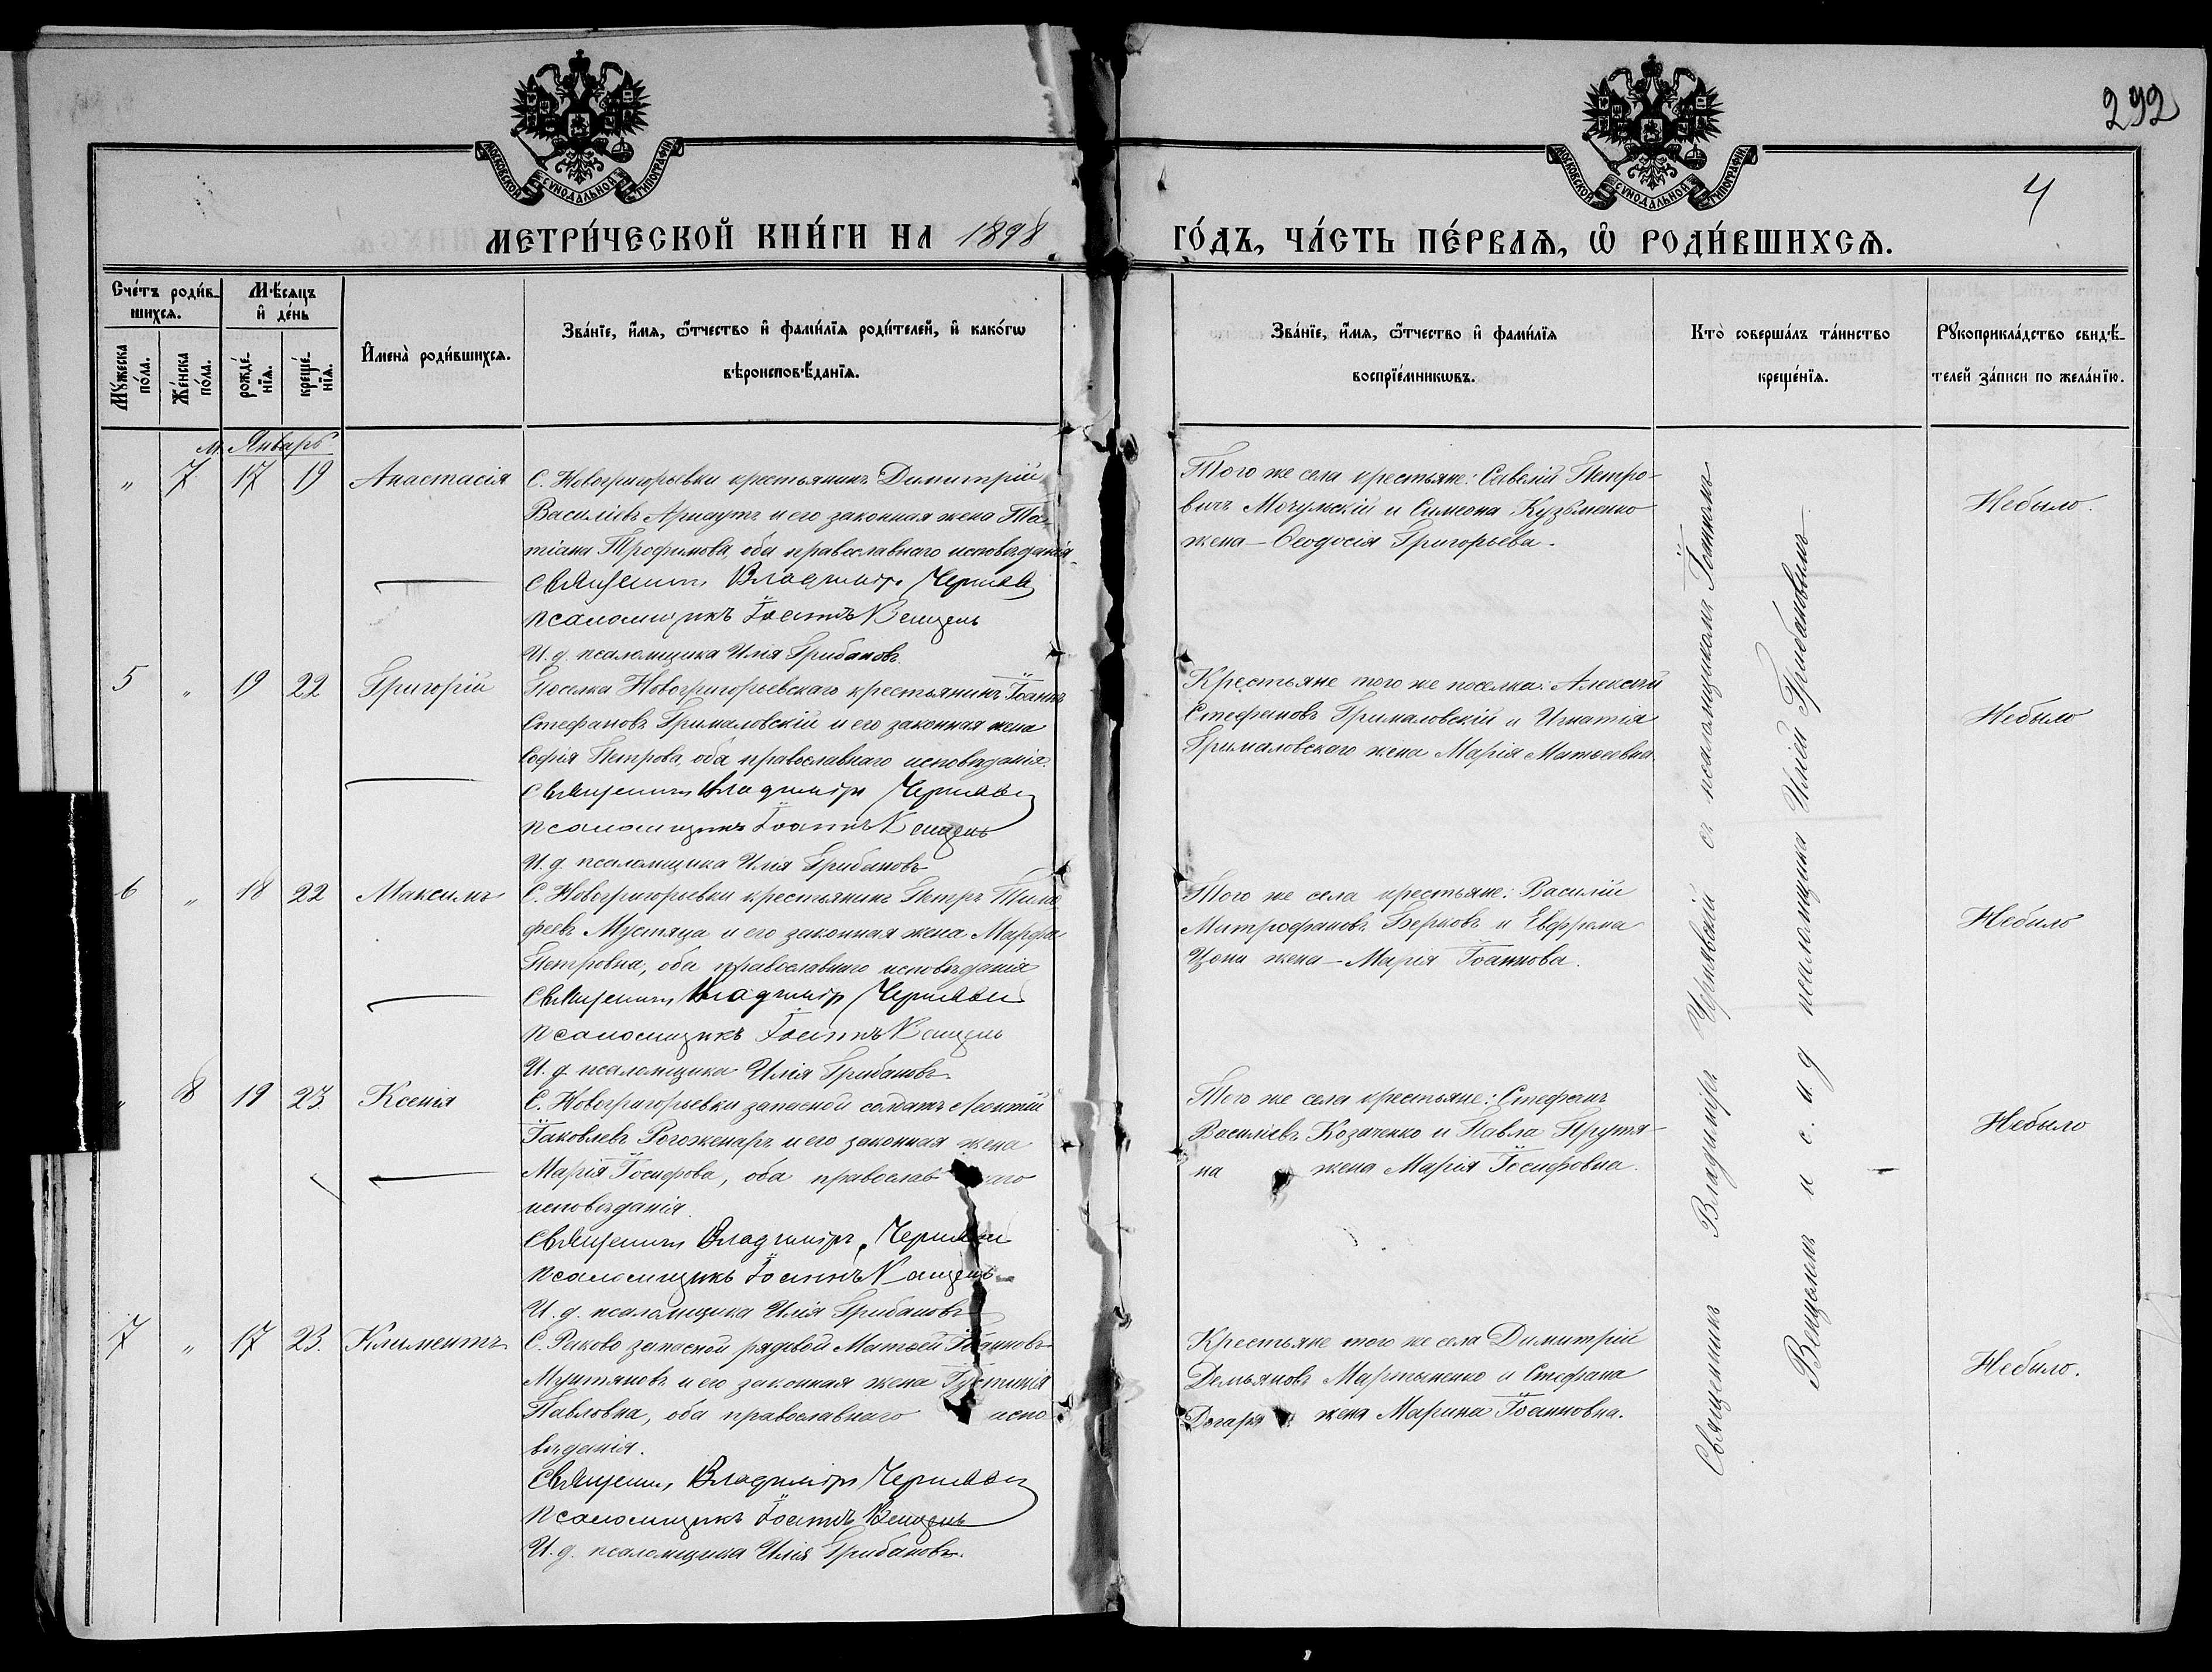 292
4
МОСКОВСКОЙ СУНОДАЛЬНОЙ ТИПОГРАФІИ
МОСКОВСКОЙ СУНОДАЛЬНОЙ ТИПОГРАФІИ
МЕТРИ́ЧЕСКОЙ КНИ́ГИ НА 1898
ГО́ДЪ, ЧА́СТЬ ПЕ́РВАѦ, Ѡ РОДИ́ВШИХСѦ.
Сче́тъ роди́в-
шихсѧ.
Мꙋ́жеска по́ла.
Же́нска по́ла.
М-ѣ́сѧцъ
и҆ де́нь
рожде́-нїѧ.
креще́-нїѧ.
И҆мена̀ роди́вшихсѧ.
Зва́нїе, и҆́мѧ, ѻ҆́тчество и҆ фами́лїѧ роди́телей, и҆ како́гѡ
вѣроисповѣ́данїѧ.
Зва́нїе, и҆́мѧ, ѻ҆́тчество и҆ фами́лїѧ
воспрїе́мникѡвъ.
Кто̀ соверша́лъ та́инство
креще́нїѧ.
Рꙋкоприкла́дство свидѣ́-
телей за́писи по жела́нїю.
м. Январь
" 7 17 19 Анастасія
С. Новогригорьевки крестьянинъ Димитрій
Василіевъ Арнаутъ и его законная жена Та-
тіана Трофимова, оба православнаго исповѣданія.
Священникъ Владиміръ Чернявскій
Псаломщикъ Іоаннъ Венцель
И. д. псаломщика Илія Грибановъ.
Того же села крестьяне: Савелій Петро-
вичъ Мочульскій и Симеона Кузьменко
жена – Ѳеодосія Григорьева.
Небыло.
5 " 19 22 Григорій
Поселка Новогригорьевскаго крестьянинъ Іоаннъ
Стефановъ Грималовскій и его законная жена
Софія Петрова, оба православнаго исповѣданія.
Священникъ Владиміръ Чернявскій
Псаломщикъ Іоаннъ Венцель
И. д. псаломщика Илія Грибановъ
Крестьяне того же поселка: Алексѣй
Стефановъ Грималовскій и Игнатія
Грималовскаго жена Марія Матѳеевна.
Небыло
6 " 18 22 Максимъ
С. Новогригорьевки крестьянинъ Петръ Тимо
феевъ Мустяца и его законная жена Марфа
Петровна, оба православнаго исповѣданія
Священникъ Владиміръ Чернявскій
Псаломщикъ Іоаннъ Венцель
И. д. псаломщика Илія Грибановъ.
Того же села крестьяне: Василій
Митрофановъ Берковъ и Евфрема
Цони жена – Марія Іоаннова.
Небыло
" 8 19 23 Ксенія
С. Новогригорьевки запасной солдатъ Леонтій
Іаковлевъ Рогоженаръ и его законная жена
Марія Іосифова, оба православнаго
исповѣданія.
Священникъ Владиміръ Чернявскій
Псаломщикъ Іоаннъ Венцель
И. д. псаломщика Илія Грибановъ
Того же села крестьяне: Стефанъ
Василіевъ Козаченко и Павла Прутя-
на жена Марія Іосифовна.
Небыло
7 " 17 23. Климентъ
С. Раково запасной рядовой Матѳей Іоанновъ
Мунтяновъ и его законная жена Іустинія
Павловна, оба православнаго испо-
вѣданія.
Священникъ Владиміръ Чернявскій
Псаломщикъ Іоаннъ Венцель
И. д. псаломщика Илія Грибановъ.
Крестьяне того же села Димитрій
Демьяновъ Мартыненко и Стефана
Догаря жена Марина Іоанновна.
Небыло.
Священникъ Владиміръ Чернявскій съ псаломщикомъ Іоанномъ
Венцелемъ и с. и. д псаломщика Иліей Грибановымъ.